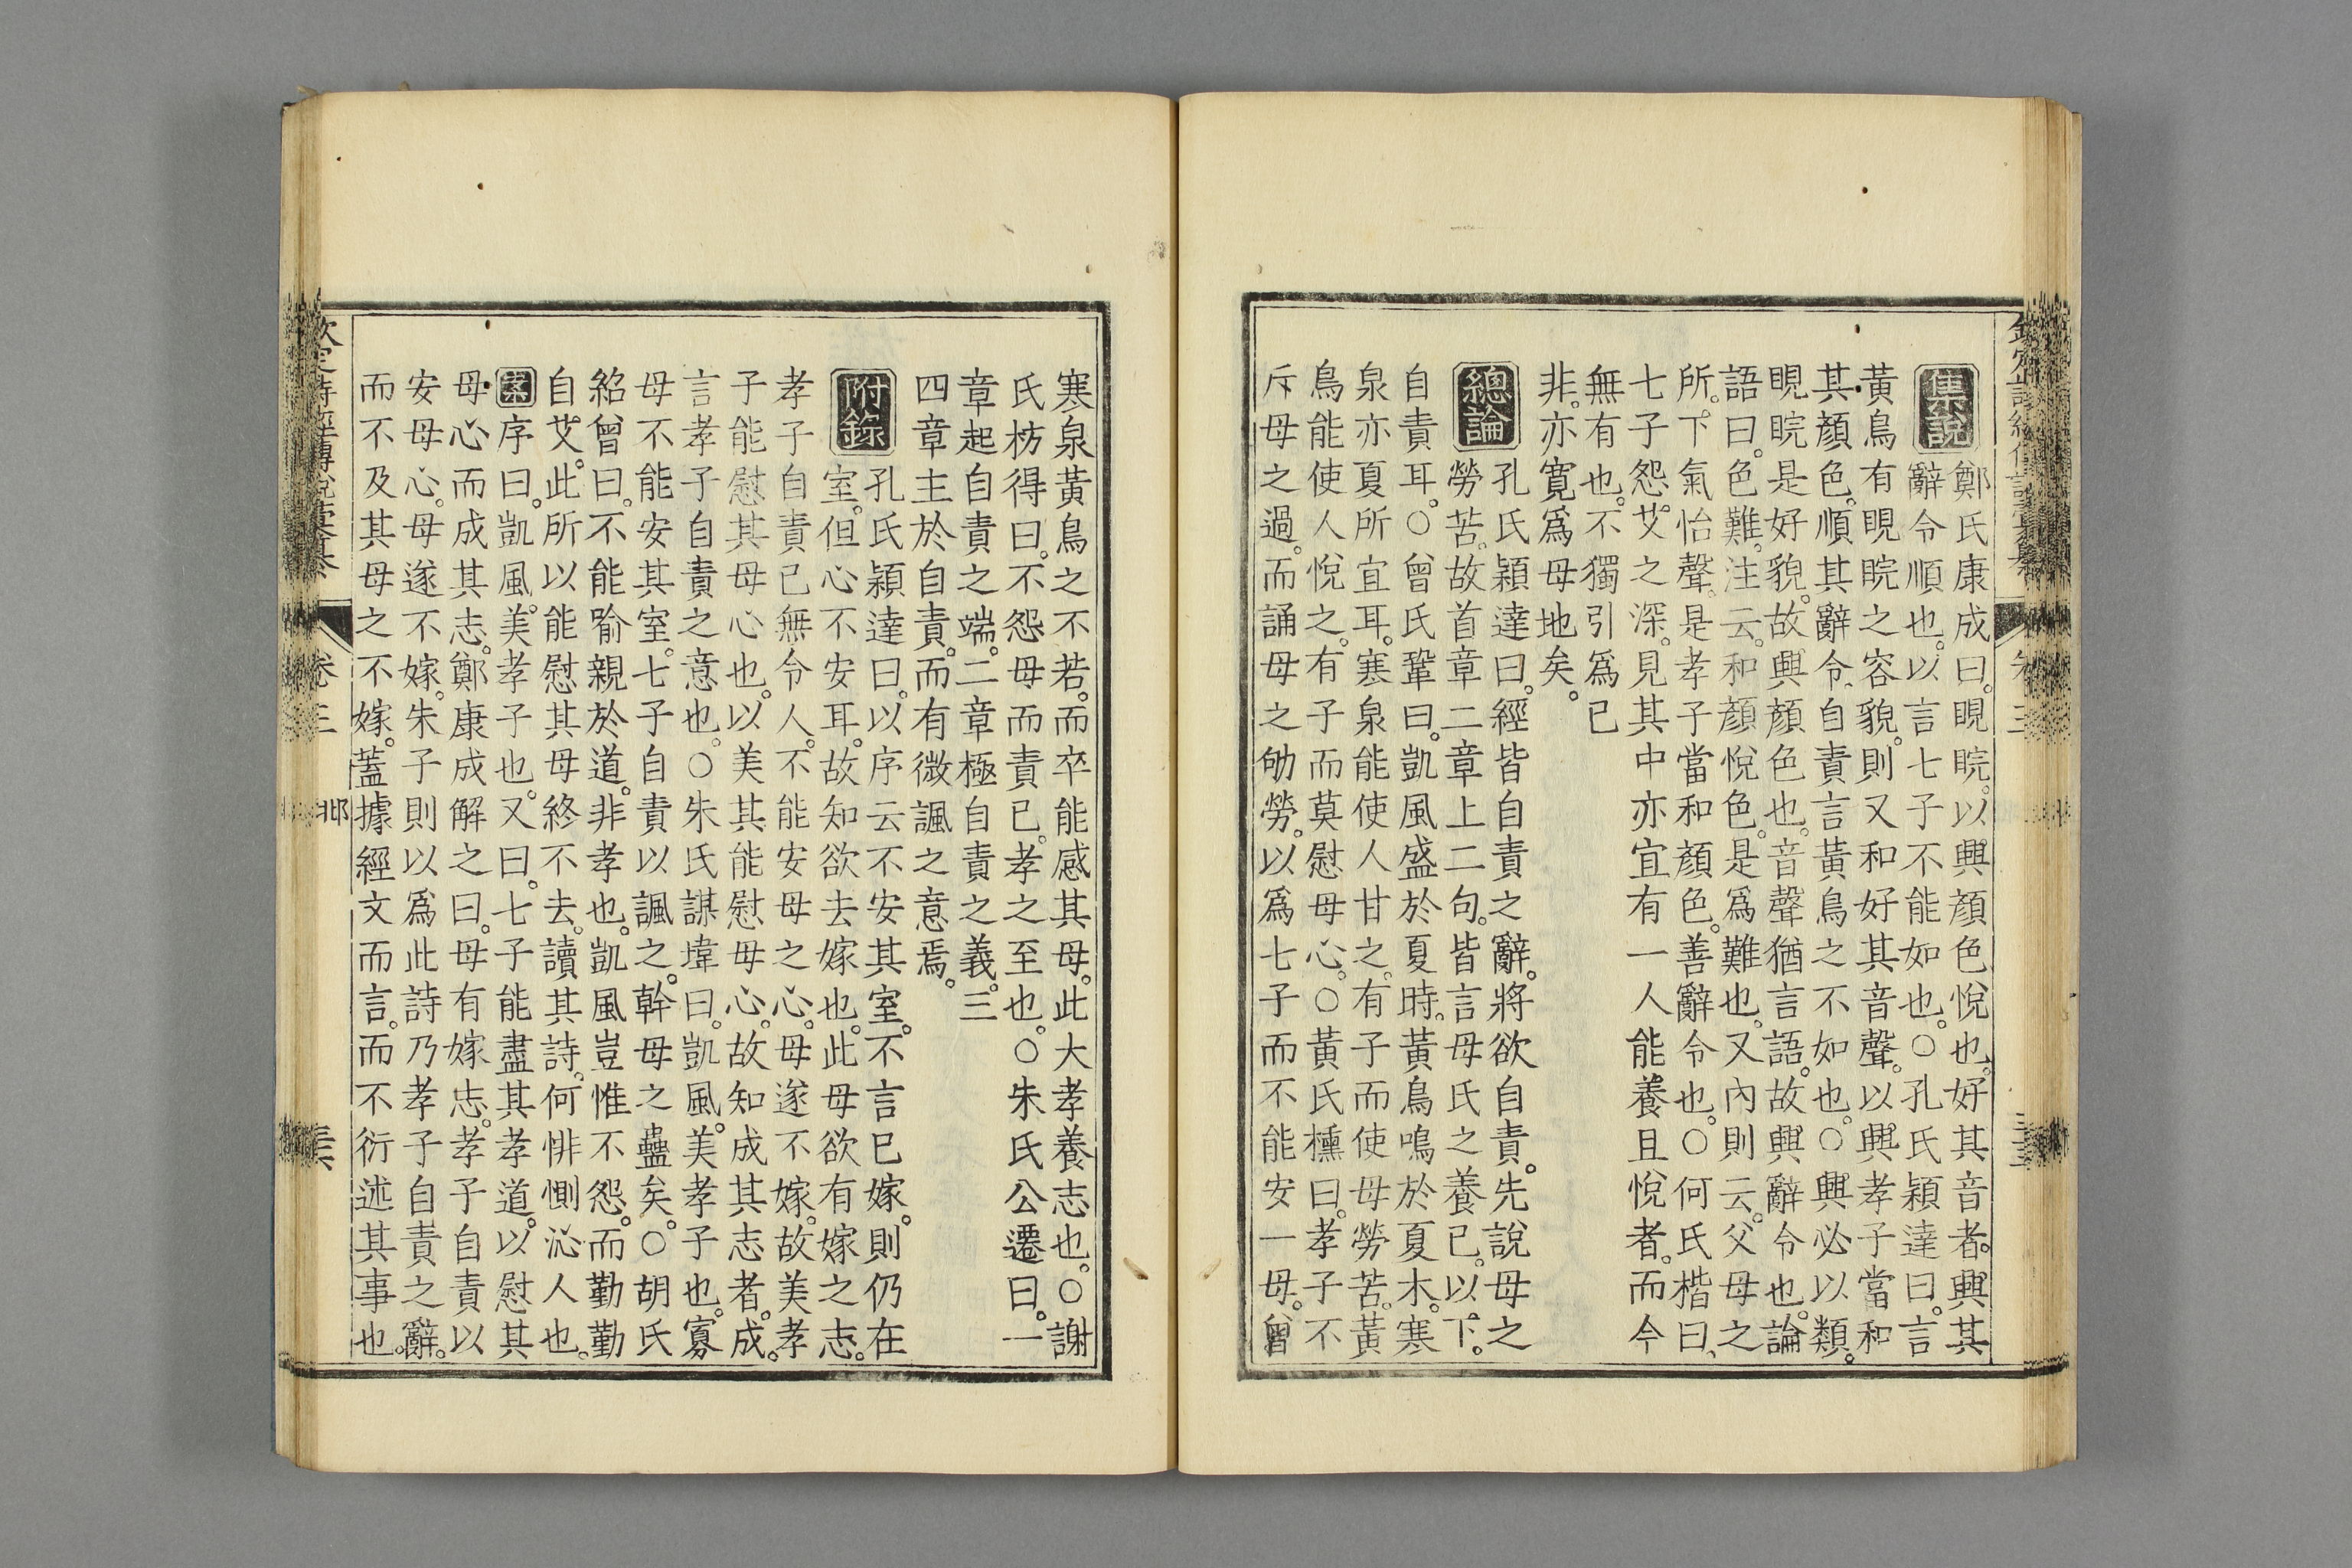 集說
鄭氏康成曰。睍睆。以興顏色悅也。好其音者。興其
辭令順也。以言七子不能如也。○孔氏穎達曰。言
黃鳥有睍睆之容貌。則又和好其音聲。以興孝子當和
其顏色。順其辭令。自責言黃鳥之不如也。○興必以類。
睍睆是好貌。故興顏色也。音聲猶言語。故興辭令也。論
語曰。色難。注云。和顏悅色。是爲難也。又內則云。父母之
所。下氣怡聲。是孝子當和顏色。善辭令也。○何氏楷曰、
七子怨艾之深。見其中亦宜有一人能養且悅者。而今
無有也。不獨引爲已
非。亦寬爲母地矣。
總論
孔氏穎達曰。經皆自責之辭。將欲自責。先說母之
勞苦。故首章二章上二句。皆言母氏之養已。以下。
自責耳。○曾氏鞏曰。凱風盛於夏時。黃鳥鳴於夏木。寒
泉亦夏所宜耳。寒泉能使人甘之。有子而使母勞苦。黃
鳥能使人悅之。有子而莫慰母心。○黃氏櫄曰。孝子不
斥母之過。而誦母之劬勞。以爲七子而不能安一母。曾
寒泉黃鳥之不若。而卒能感其母。此大孝養志也。○謝
氏枋得曰。不怨母而責已。孝之至也。○朱氏公遷曰。一
章起自責之端。二章極自責之義。三
四章主於自責。而有微諷之意焉。
附錄
孔氏穎達曰。以序云不安其室。不言已嫁。則仍在
室。但心不安耳。故知欲去嫁也。此母欲有嫁之志。
孝子自責己無令人。不能安母之心。母遂不嫁。故美孝
子能慰其母心也。以美其能慰母心。故知成其志者。成
言孝子自責之意也。○朱氏謀㙔曰。凱風。美孝子也。寡
母不能安其室。七子自責以諷之。幹母之蠱矣。○胡氏
紹曾曰。不能喻親於道。非孝也。凱風豈惟不怨。而勤勤
自艾。此所以能慰其母終不去。讀其詩。何悱惻沁人也。
案序曰。凱風。美孝子也。又曰。七子能盡其孝道。以慰其
母心而成其志。鄭康成解之曰。母有嫁志。孝子自責以
安母心。母遂不嫁。朱子則以爲此詩乃孝子自責之辭。
而不及其母之不嫁。蓋據經文而言。而不衍述其事也。
欽定詩經傳說彙纂
卷三
邶